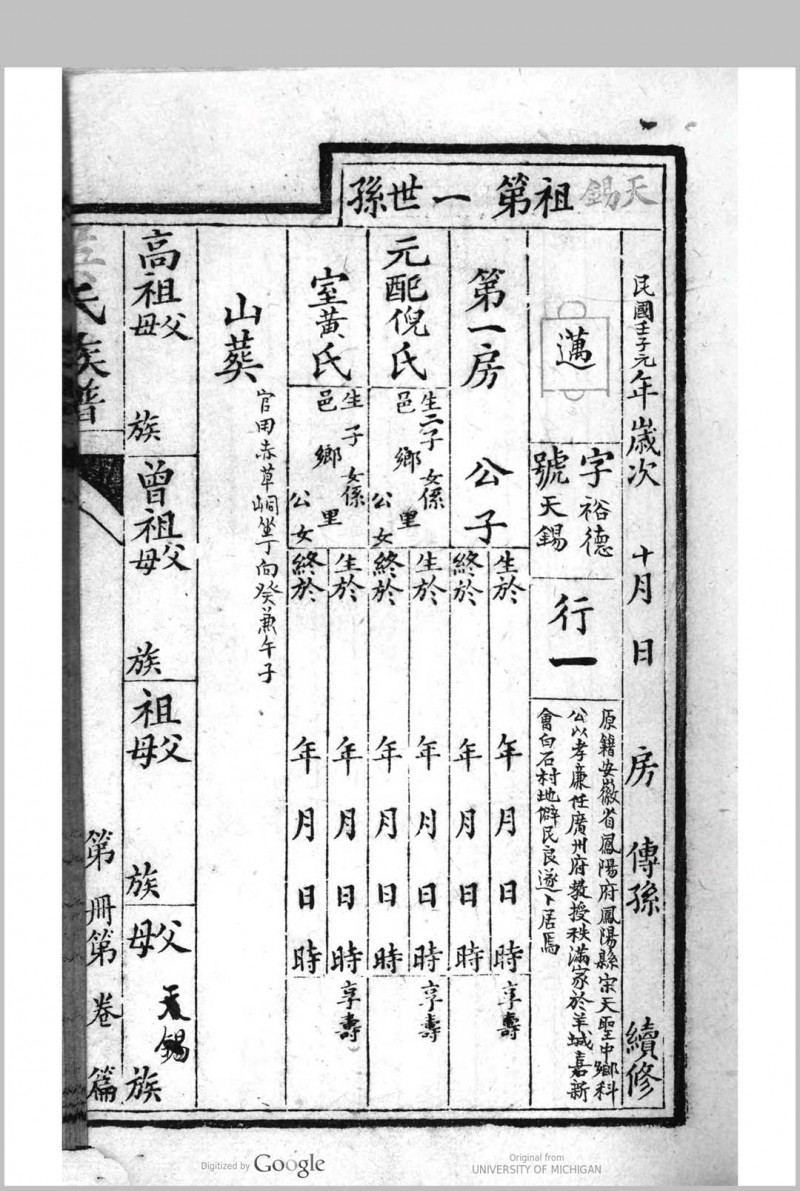 天錫祖第一世孫
民國壬子元年歲次 十月 日 房 傳孫 續修
邁
字裕德
號天錫
行一
原籍安徽省鳳陽府鳳陽縣宋天聖中鄉科
公以孝廉任廣州府教授秩滿家於羊城嘉新
會白石村地僻民良遂卜居焉
第一房 公子
生於 年 月 日 時 享壽
終於 年 月 日 時
元配倪氏
生二子 女係
邑 鄉 里 公女
生於 年 月 日 時 享壽
終於 年 月 日 時
室黃氏
生 子 女係
邑 鄉 里 公女
生於 年 月 日 時 享壽
終於 年 月 日 時
山葬
官田赤草峒坐丁向癸兼午子
高祖父母 族
曾祖父母 族
祖父母 族
父母 天錫 族
氏族譜
第 冊第 卷 篇
Digitized by Google
Original from
UNIVERSITY OF MICHIGAN